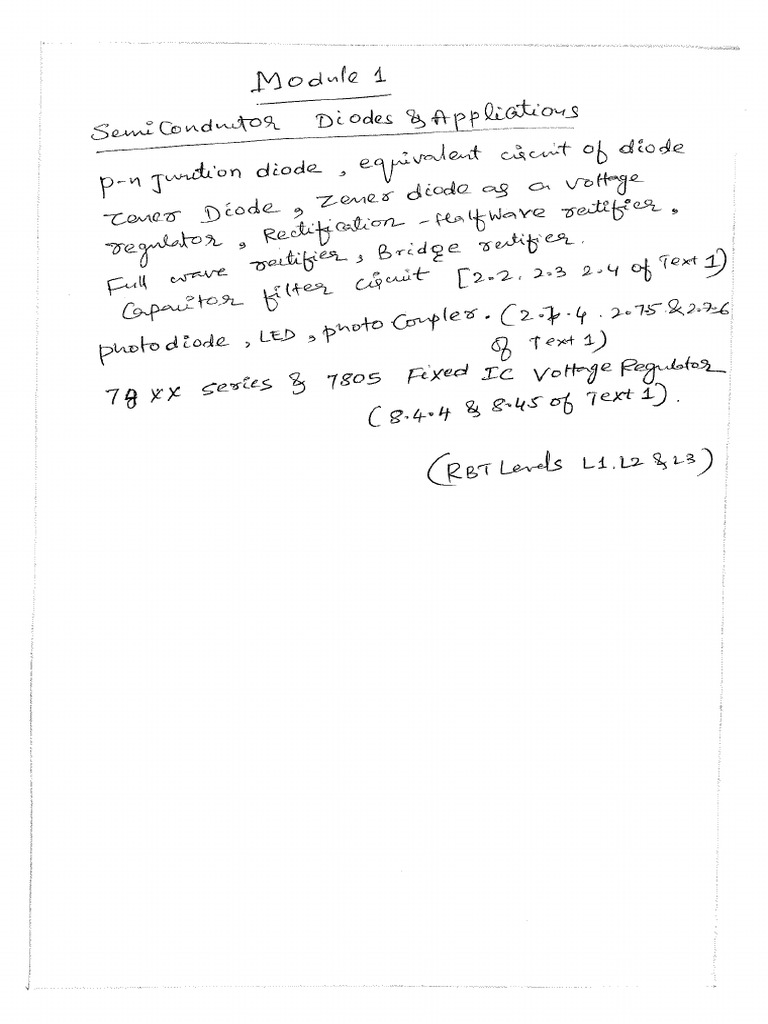 Module 1
Semiconductor Diodes & Applications
p-n Junction diode, equivalent circuit of diode
Zener Diode, Zener diode as a voltage
regulator, Rectification - Half wave rectifier,
Full wave rectifier, Bridge rectifier.
Capacitor filter circuit [2.2, 2.3 2.4 of Text 1)
photodiode, LED, photo Coupler. (2.7.4. 2.75 & 2.7.6
of Text 1)
78 xx series & 7805 Fixed IC Voltage Regulator
(8.4.4 & 8.45 of Text 1).
(RBT Levels L1, L2 & L3)